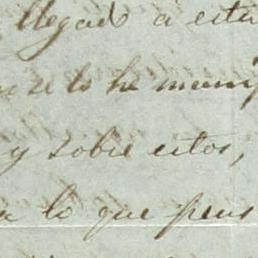 llegado a esta
se lo he manif
y sobre estos,
lo que pens